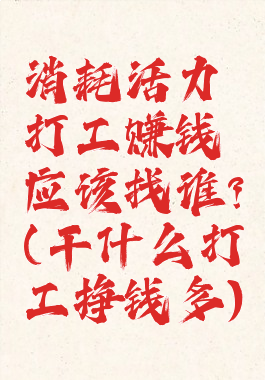 消耗活力
打工赚钱
应该找谁?
(干什么打
工挣钱多)